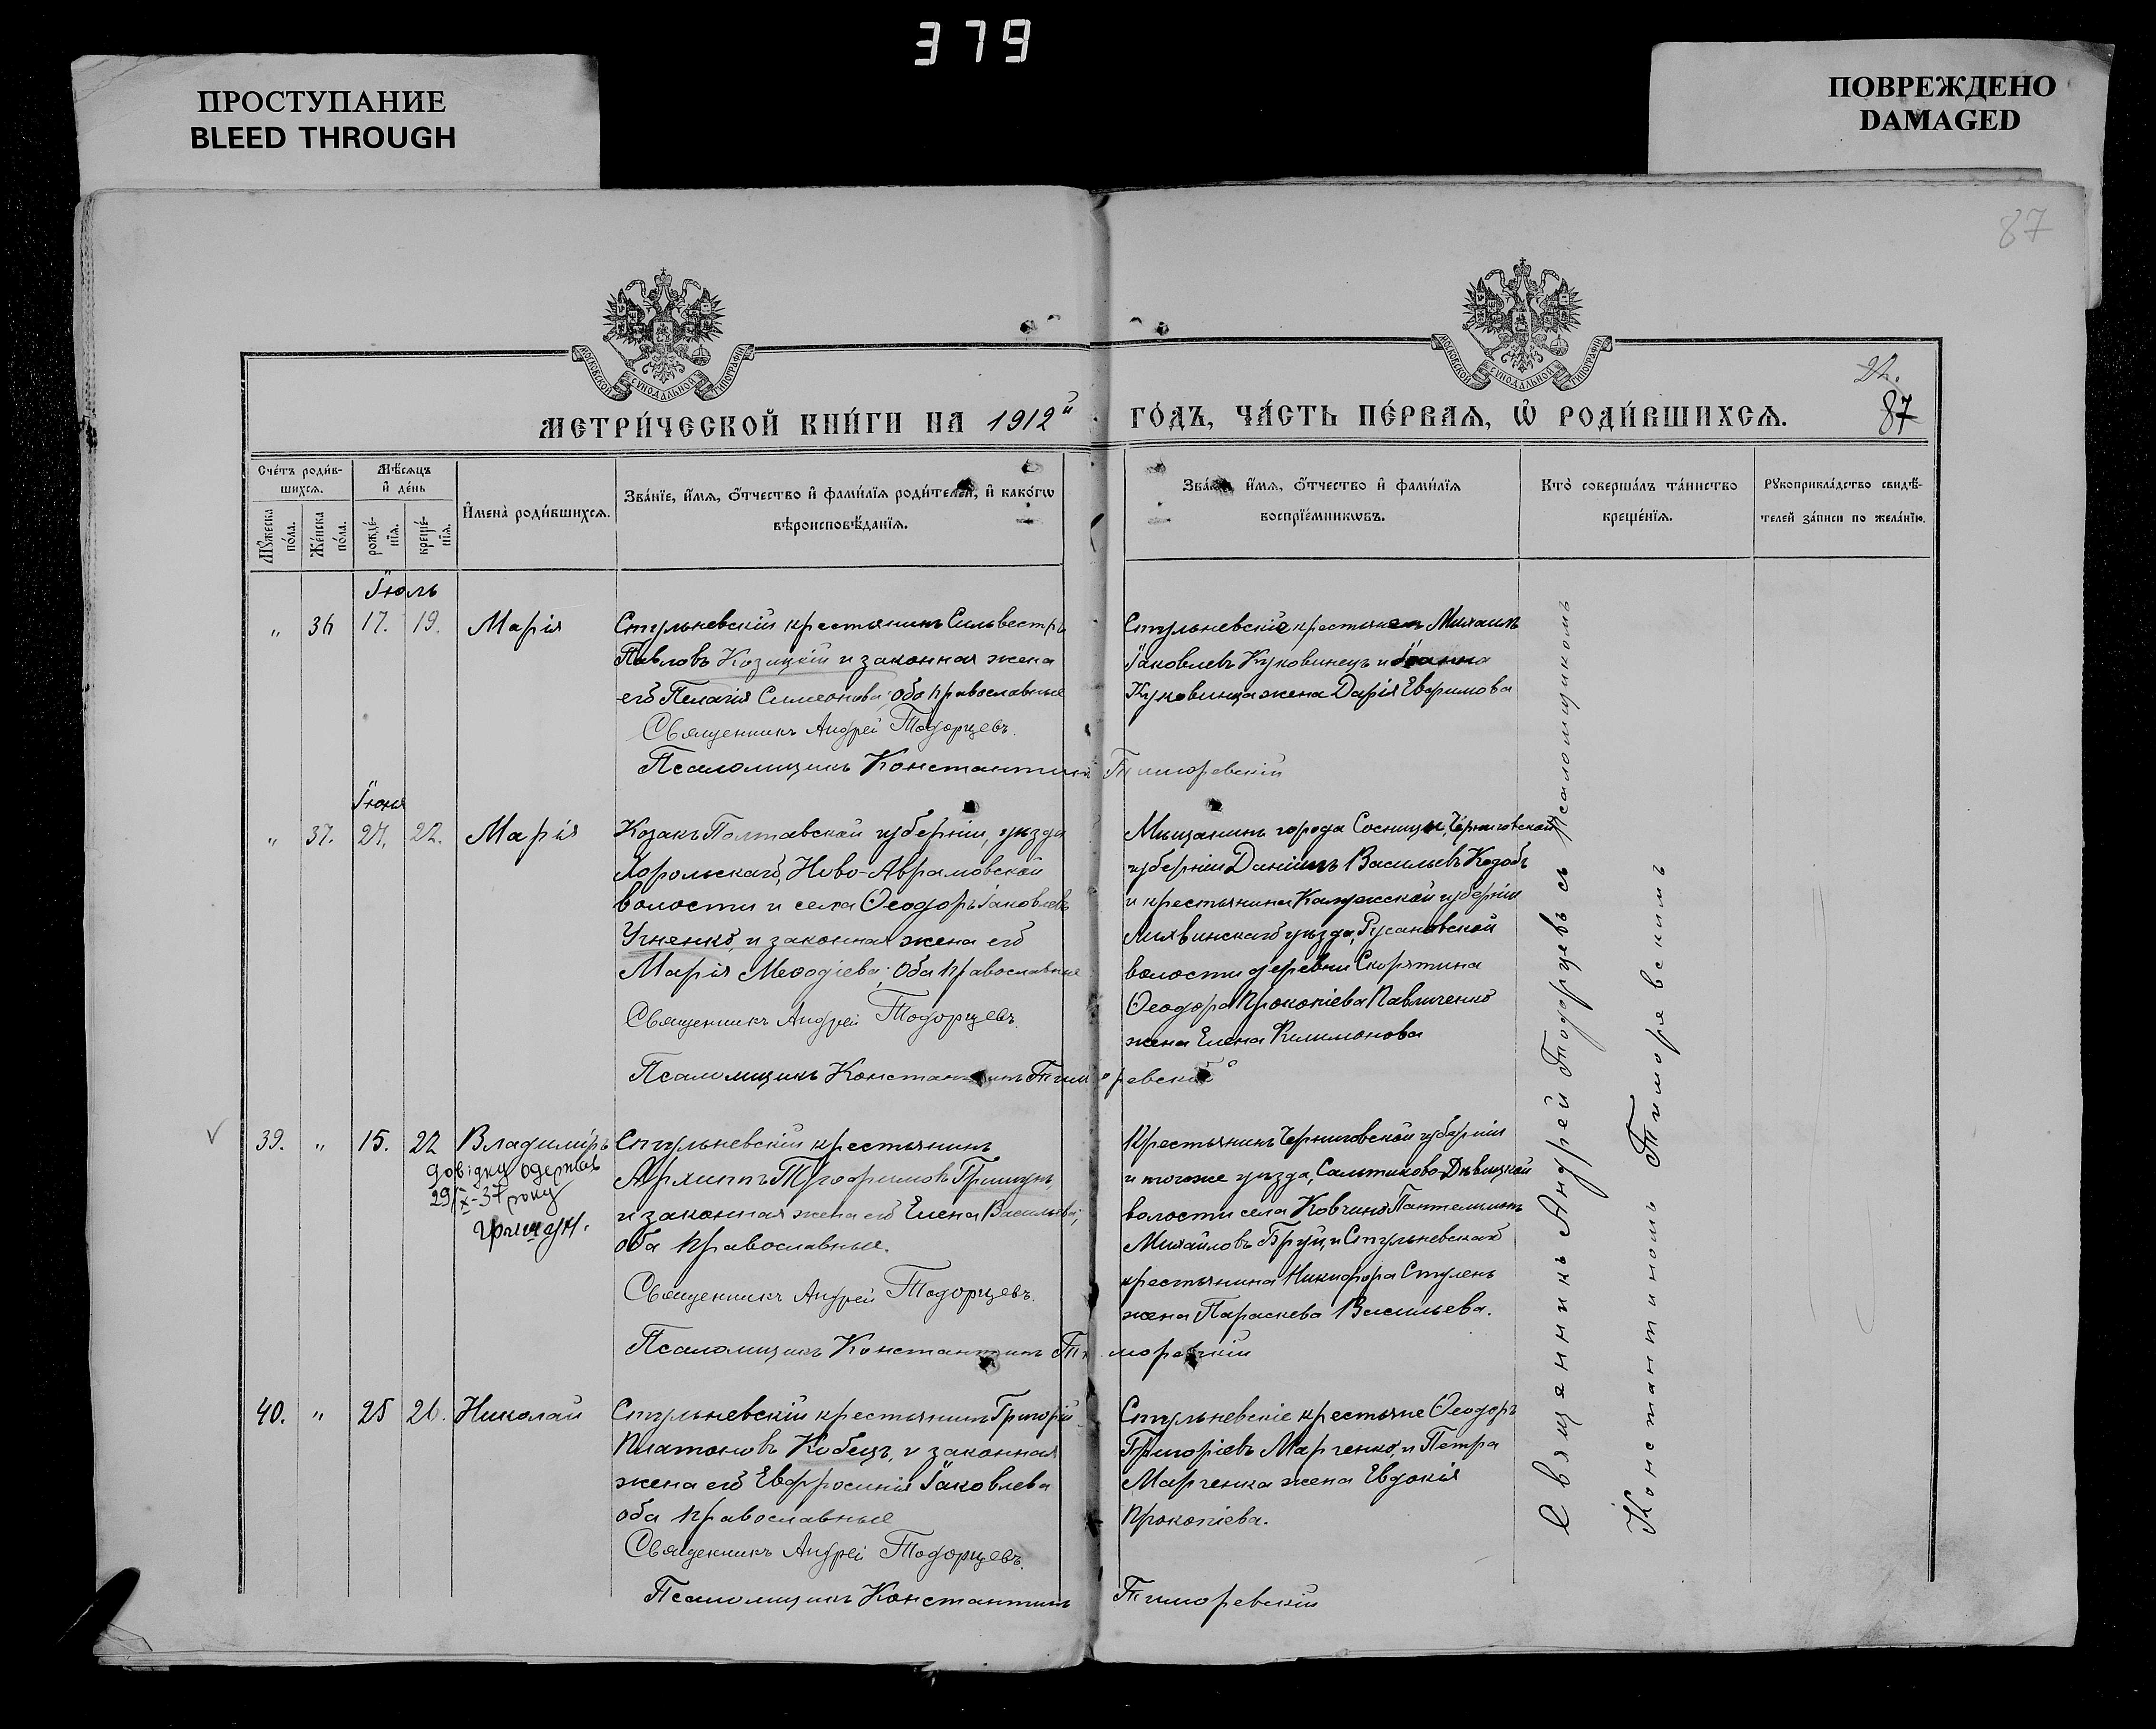 379
ПРОСТУПАНИЕ
BLEED THROUGH
ПОВРЕЖДЕНО
DAMAGED
87
МОСКОВСКОЙ СѴНОДАЛЬНОЙ ТИПОГРАФІИ
МОСКОВСКОЙ СѴНОДАЛЬНОЙ ТИПОГРАФІИ
22.
87
МЕТРИ́ЧЕСКОЙ КНИ́ГИ НА 1912й ГО́ДЪ, ЧА́СТЬ ПЕ́РВАѦ, Ѡ РОДИ́ВШИХСѦ.
Сче́тъ роди́в-
шихсѧ.
Мꙋжеска по́ла.
Же́нска по́ла.
Мѣ́сѧцъ
и҆ де́нь
рожде́-
нїѧ.
креще́-
нїѧ.
И҆мена̀ роди́вшихсѧ.
Зва́нїе, и҆́мѧ, ѻ҆́тчество и҆ фамилїѧ роди́телей, и҆ како́гѡ
вѣроисповѣ́данїѧ.
Зва́нїе, и҆́мѧ, ѻ҆́тчество и҆ фами́лїѧ
воспрїе́мникѡвъ.
Кто̀ соверша́лъ та́инство
креще́нїѧ.
Рꙋкоприкла́дство свидѣ́-
телей за́писи по жела́нїю.
Іюль
" 36 17. 19. Марія
Стульневскій крестьянинъ Сильвестръ
Павловъ Козицкій и законная жена
его Пелагія Симеонова; оба православные
Священникъ Андрей Тодорцевъ.
Псаломщикъ Константинъ Тиморевскій
Стульневскіе крестьяне Михаилъ
Іаковлевъ Куковинецъ и
Куковинца жена Дарія Ефимова
Іюня
" 37. 21. 22. Марія
Козакъ Полтавской губерніи, уѣзда
Хорольскаго, Ново-Аврамовской
волости и села Ѳеодоръ Іаковлевъ
и законная жена его
Марія Меѳодіева; оба православные
Священникъ Андрей Тодорцевъ.
Псаломщикъ Константинъ Тиморевскій
Мѣщанинъ города Сосницы, Черниговской
губерніи Даніилъ Васильевъ
и крестьянина Калужской губерніи
Лихвинскаго уѣзда, Русановской
волости деревни Скорятина
Ѳеодора Прокопіева Павличенко
жена Елена Филимонова
39. " 15. 22 Владиміръ
довідку одержав
29/X-37 року
Гришун.
Стульневскій крестьянинъ
Архиппъ Трофимовъ Гришунъ,
и законная жена его Елена Васильева;
оба православные.
Священникъ Андрей Тодорцевъ.
Псаломщикъ Константинъ Тиморевскій
Крестьянинъ Черниговской губерніи
и тогоже уѣзда, Салтыково-Дѣвицкой
волости села Ковчина Пантелимонъ
Михайловъ Бруй, и Стульневскаго
крестьянина Никифора Стулень
жена Параскева Васильева.
40. " 25 26. Николай
Стульневскій крестьянинъ Григорій
Платоновъ Кобецъ, и законная
жена его Евфросинія Іаковлева
оба православные
Священникъ Андрей Тодорцевъ.
Псаломщикъ Константинъ Тиморевскій
Стульневскіе крестьяне Ѳеодоръ
Григоріевъ Марченко, и Петра
Марченка жена Евдокія
Прокопіева.
Священникъ Андрей Тодорцевъ съ псаломщикомъ
Константиномъ Тиморевскимъ